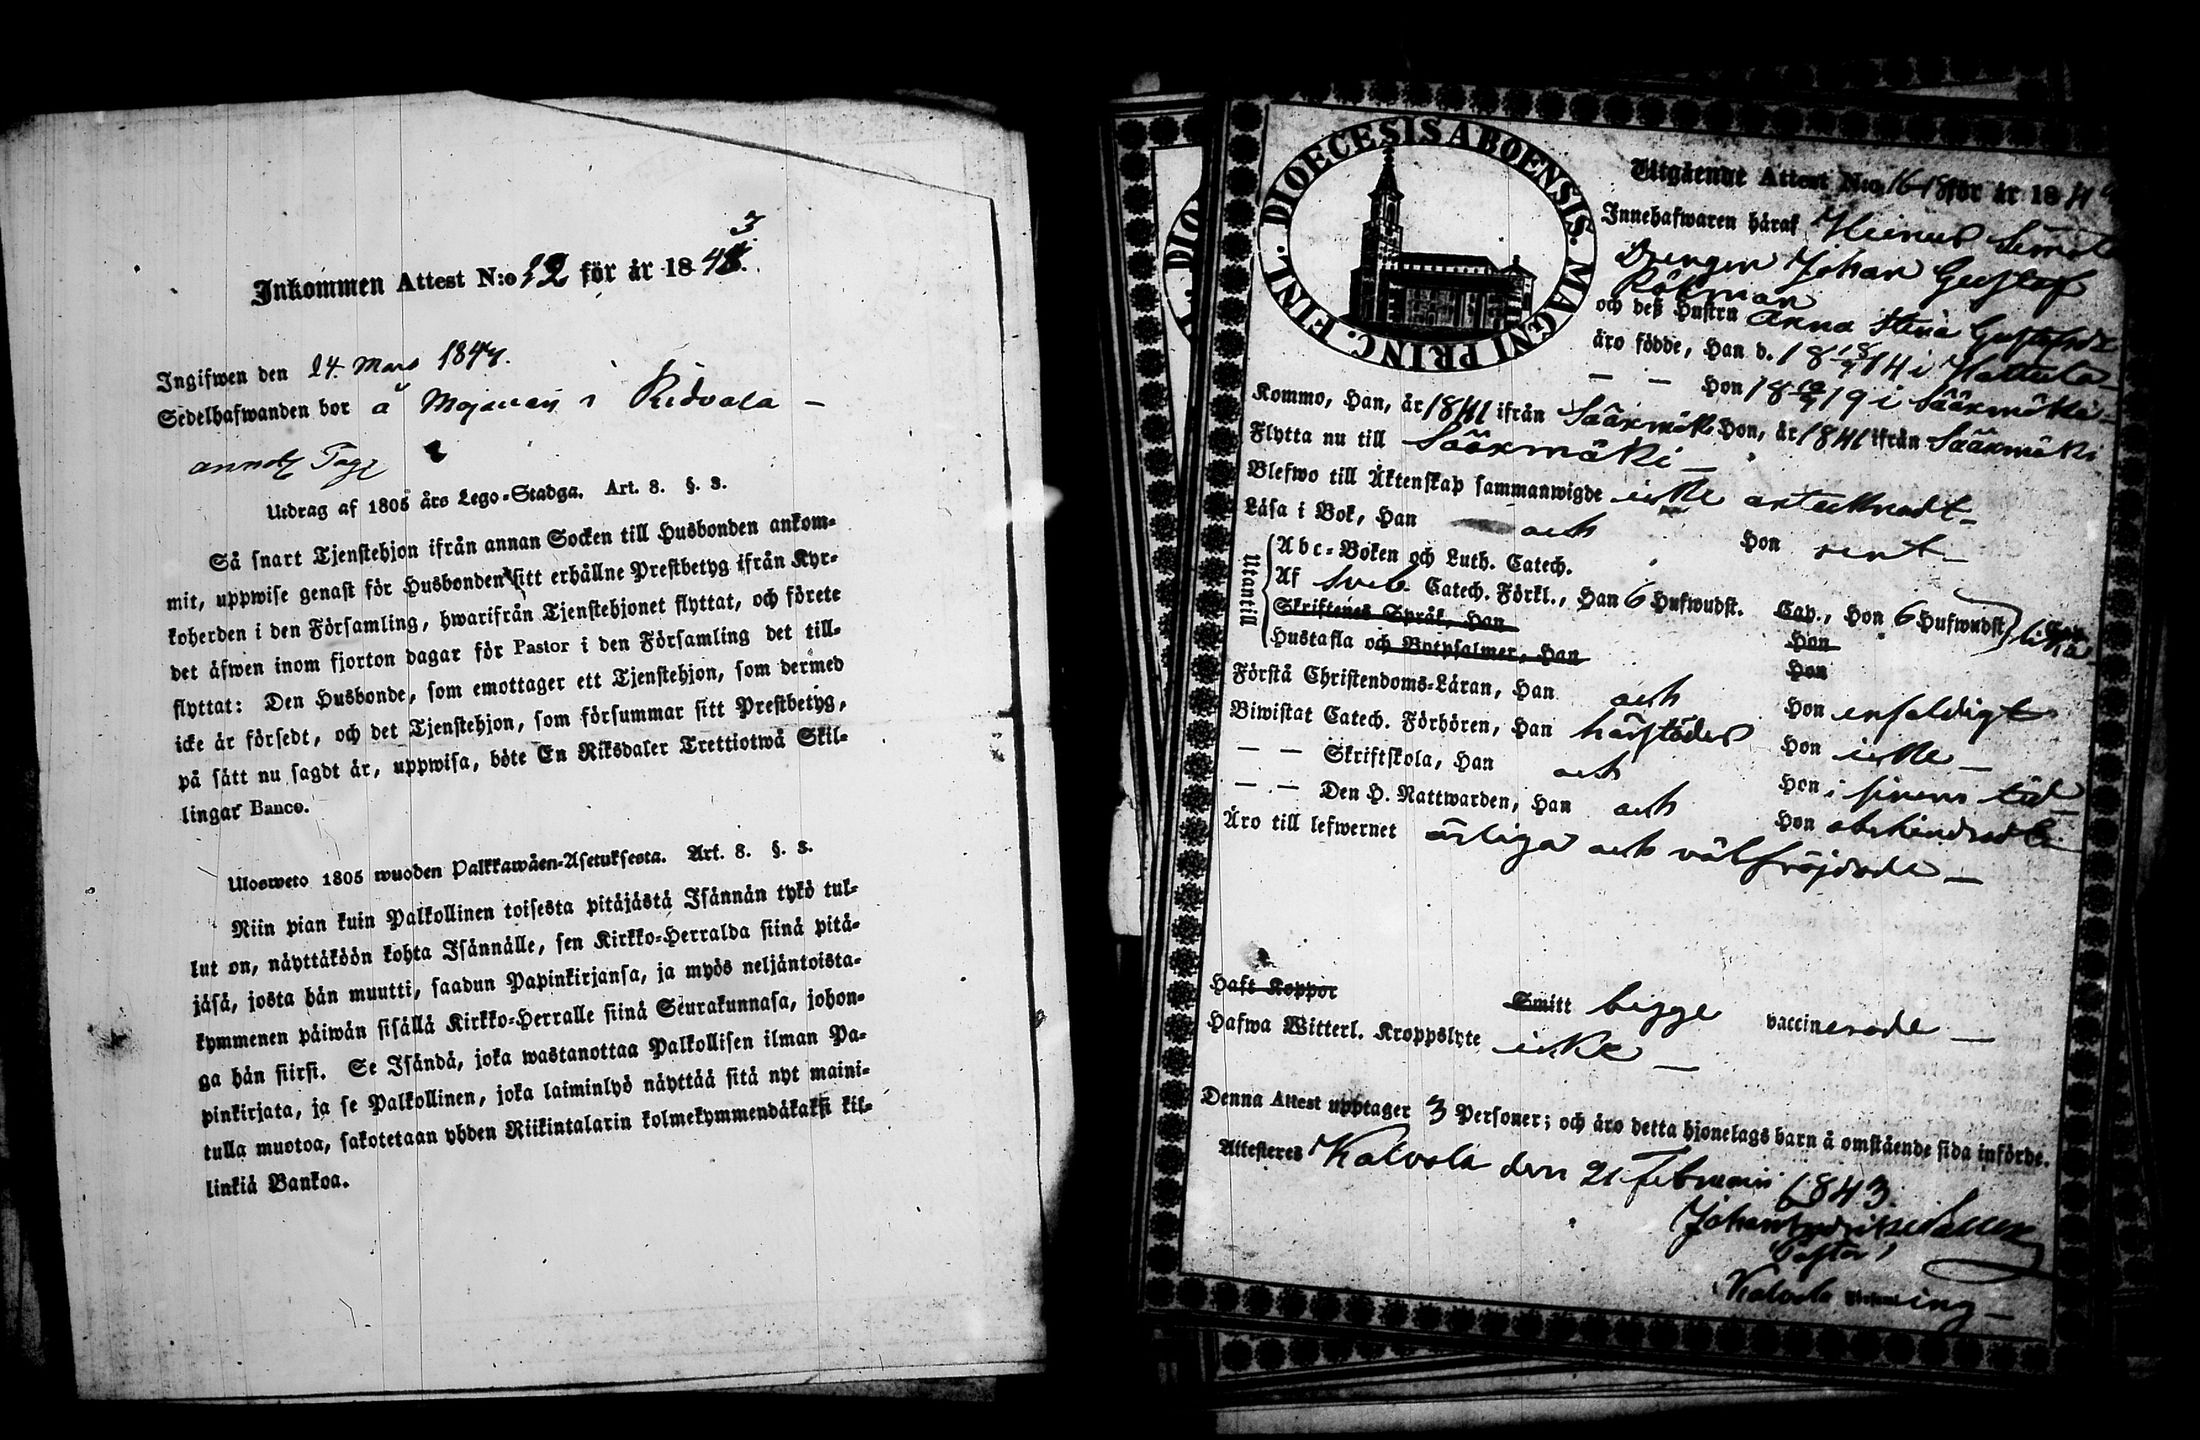 Inkommen Attest N:o 12 för år 1843.
Ingifwen den 24 Mars 1843.
Sedelhafwanden bor å i Ridvala –
Utdrag af 1805 års Lego-Stadga. Art. 8. §. 3.
Så snart Tjenstehjon ifrån annan Socken till Husbonden ankom-
mit, uppwise genast för Husbonden sitt erhållne Prestbetyg ifrån Kyr-
koherden i den Församling, hwarifrån Tjenstehjonet flyttat, och förete
det äfwen inom fjorton dagar för Pastor i den Församling det till-
flyttat: Den Husbonde, som emottager ett Tjenstehjon, som dermed
icke är försedt, och det Tjenstehjon, som försummar sitt Prestbetyg,
på sätt nu sagdt är, uppwisa, böte En Riksdaler Trettiotwå Skil-
lingar Banco.
Ulosweto 1805 wuoden Palkkawäen-Asetuksesta. Art. 8. §. 3.
Niin pian kuin Palkollinen toisesta pitäjästä Isännän tykö tul-
lut on, näyttäköön kohta Isännälle, sen Kirkko-Herralda siinä pitä-
jäsä, josta hän muutti, saadun Papinkirjansa, ja myös neljäntoista-
kymmenen päiwän sisällä Kirkko-Herralle siinä Seurakunnasa, johon-
ga hän siirsi. Se Isändä, joka wastanottaa Palkollisen ilman Pa-
pinkirjata, ja se Palkollinen, joka laiminlyö näyttää sitä nyt maini-
tulla muotoa, sakotetaan yhden Riikintalarin kolmekymmendäkaksi kil-
linkiä Bankoa.
DIOECESIS ABOENSIS. MAGNI PRINC. FINL.
Utgående Attest N:o 16 för år 18
Innehafwaren häraf
Drengen Johan Gustaf
och deß Hustru Anna Stina Gustafsdr
äro födde, Han d. 18 14 i Hattula –
— — Hon 18 19 i Sääxmäki –
Kommo, Han, år 1841 ifrån Sääxmäki Hon, år 1841 ifrån Sääxmäki
Flytta nu till Sääxmäki –
Blefwo till Äktenskap sammanwigde icke antecknadt –
Läsa i Bok, Han och Hon rent –
Utanett
Abc-Boken och Luth. Catech.
Af Sveb. Catech. Förkl., Han 6 Hufwudst. Cap., Hon 6 Hufwudst Cap.
Skriftenes Språk, Han Hon
Hustafla och Botpsalmer, Han Hon
Förstå Christendoms-Läran, Han och Hon enfaldigt
Biwistat Catech. Förhören, Han härstädes Hon icke –
— — Skriftskola, Han och Hon i sinom tid
— — Den H. Nattwarden, Han och Hon obehindradt
Äro till lefwernet ärliga och välfräjdade –
Haft Koppor Smitt begge vaccinerade –
Hafwa Witterl. Kroppslyte icke –
Denna Attest upptager 3 Personer; och äro detta hjonelags barn å omstående sida införde.
Attesteras Kalvola den 21 Februarii 1843.
Pastor
Kalvola